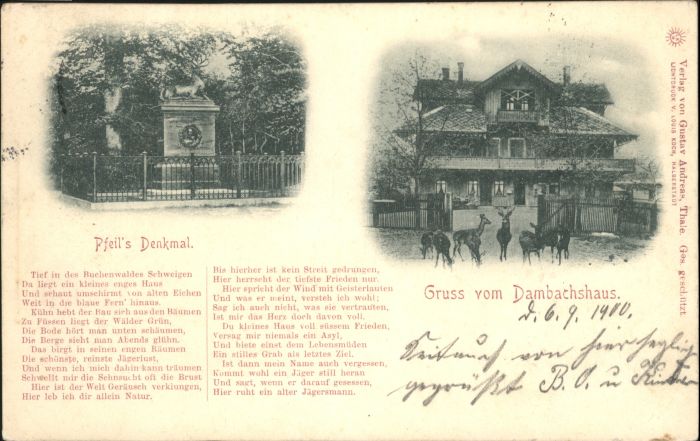 Pfeil's Denkmal.
Tief in des Buchenwaldes Schweigen
Da liegt ein kleines enges Haus
Und schaut umschirmt von alten Eichen
Weit in die blaue Fern' hinaus.
Kühn hebt der Bau sich aus den Bäumen
Zu Füssen liegt der Wälder Grün,
Die Bode hört man unten schäumen,
Die Berge sieht man Abends glühn.
Das birgt in seinen engen Räumen
Die schönste, reinste Jägerlust,
Und wenn ich mich dahin kann träumen
Schwellt mir die Sehnsucht oft die Brust
Hier ist der Welt Geräusch verklungen,
Hier leb ich dir allein Natur.
Bis hierher ist kein Streit gedrungen,
Hier herrscht der tiefste Frieden nur.
Hier spricht der Wind mit Geisterlauten
Und was er meint, versteh ich wohl;
Sag ich auch nicht, was sie vertrauten,
Ist mir das Herz doch davon voll.
Du kleines Haus voll süssem Frieden,
Versag mir niemals ein Asyl,
Und biete einst dem Lebensmüden
Ein stilles Grab als letztes Ziel.
Ist dann mein Name auch vergessen,
Kommt wohl ein Jäger still heran
Und sagt, wenn er darauf gesessen,
Hier ruht ein alter Jägersmann.
Gruss vom Dambachshaus.
d. 6. 9. 1900.
von hier
gegrüßt B. O. u
Verlag von Gustav Andreas, Thale. Ges. geschützt
LICHTDRUCK V. LOUIS KOCH, HALBERSTADT